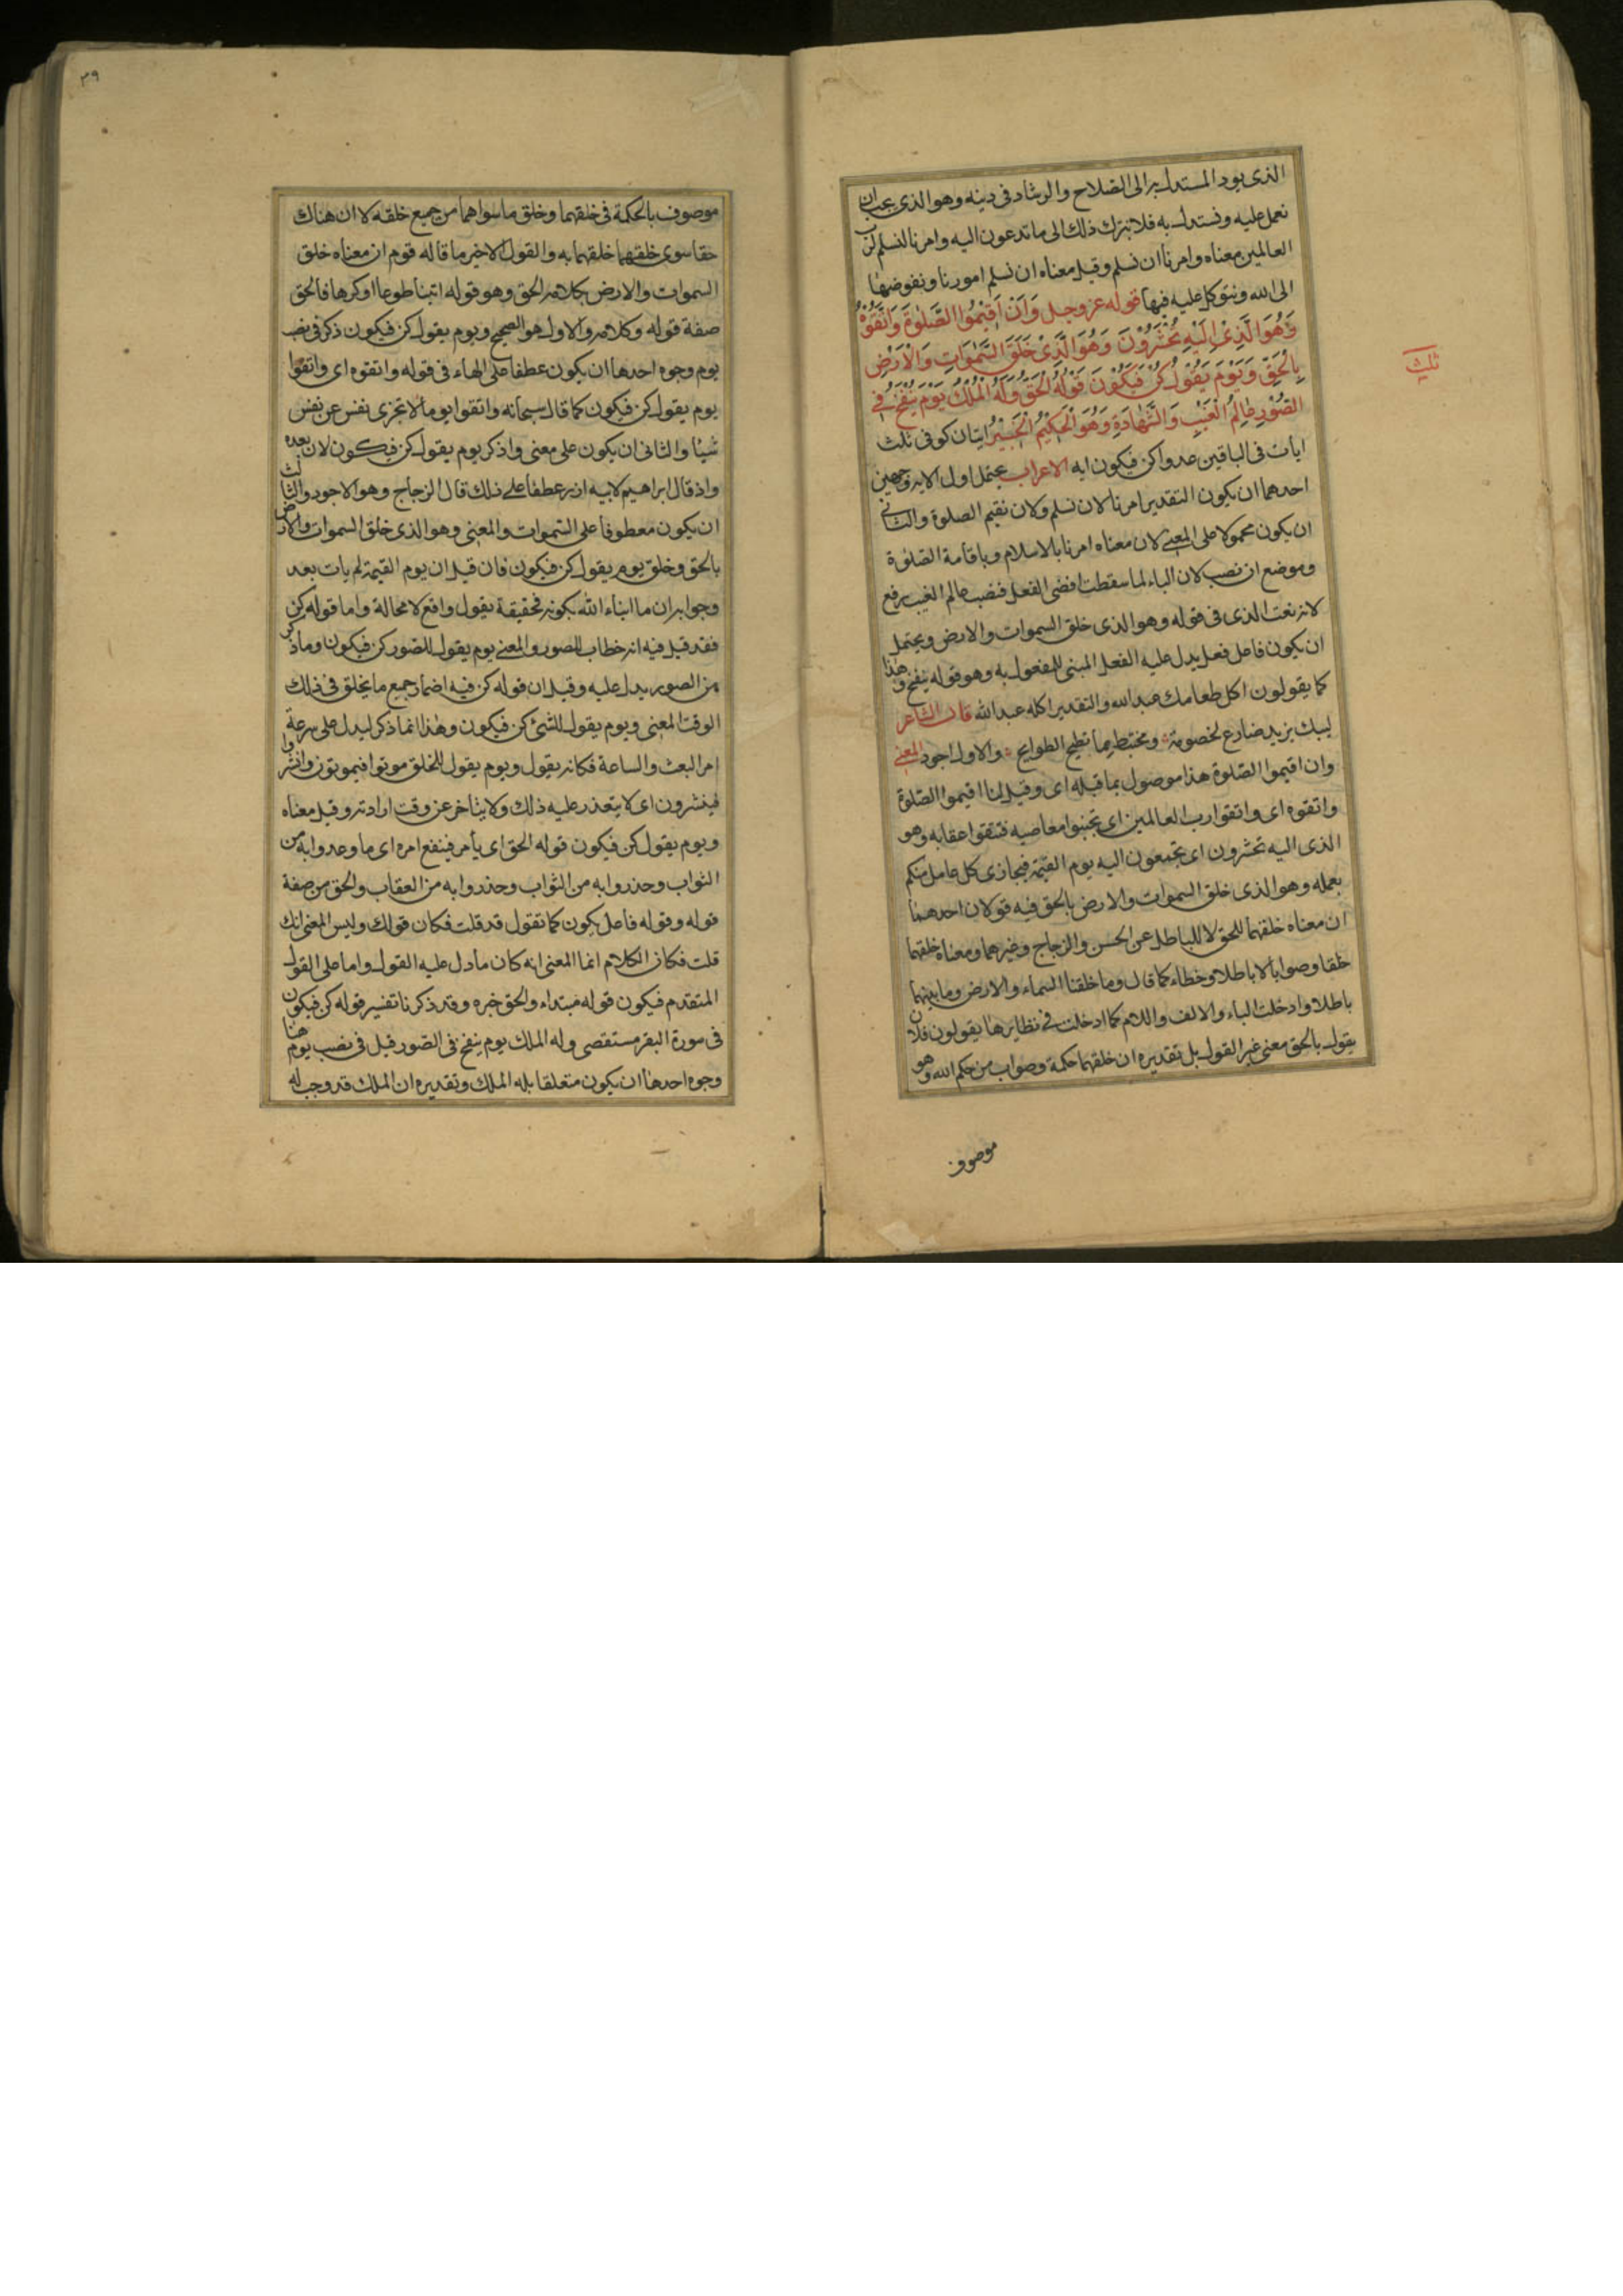 الذى يود المستدل به الى الصلاح والرشاد فى دينه وهو الذى يجب ان
نعمل عليه ونستدل به فلا نترك ذلك الى ما تدعون اليه وامرنا لنسلم لرب
العالمين معناه وامرنا ان نسلم وقيل معناه ان نسلم امورنا ونفوضها
الى الله ونتوكل عليه فيها قوله عز وجل وَاَنْ اَقِيْمُوا الصَّلٰوةَ وَاتَّقُوْهُ
وَهُوَ الَّذِىْ اِلَيْهِ تُحْشَرُوْنَ وَهُوَ الَّذِىْ خَلَقَ السَّمٰوَاتِ وَالْاَرْضَ
بِالْحَقِّ وَيَوْمَ يَقُوْلُ كُنْ فَيَكُوْنُ قَوْلُهُ الْحَقُّ وَلَهُ الْمُلْكُ يَوْمَ يُنْفَخُ فِى
الصُّوْرِ عَالِمُ الْغَيْبِ وَالشَّهَادَةِ وَهُوَ الْحَكِيْمُ الْخَبِيْرُ ايتان كوفى ثلث
ثلث
ايات فى الباقين عدوا كن فيكون ايه الاعراب يحتمل اول الايه وجهين
احدهما ان يكون التقدير امرنا لان نسلم ولان نقيم الصلوة والثانى
ان يكون محمولا على المعنى لان معناه امرنا بالاسلام وباقامة الصلوة
وموضع ان نصب لان الباء لما سقطت افضى الفعل فنصب عالم الغيب رفع
لانه نعت الذى فى قوله وهو الذى خلق السموات والارض ويحتمل
ان يكون فاعل فعل يدل عليه الفعل المبنى للمفعول به وهو قوله ينفخ وهذا
كما يقولون اكل طعامك عبد الله والتقدير اكله عبد الله قال الشاعر
ليبك يزيد ضارع لخصومة ومختبط مما تطيح الطوايح والاول اجود المعنى
وان اقيموا الصلوة هذا موصول بما قبله اى وقيل لنا اقيموا الصلوة
واتقوه اى واتقوا رب العالمين اى تجنبوا معاصيه فتتقوا عقابه وهو
الذى اليه تحشرون اى تجتمعون اليه يوم القيمة فيجازى كل عامل منكم
بعمله وهو الذى خلق السموات والارض بالحق فيه قولان احدهما
ان معناه خلقهما للحق لا للباطل عن الحسن والزجاج وغيرهما ومعناه خلقهما
خلقا وصوابا لا باطلا وخطاء كما قال وما خلقنا السماء والارض وما بينهما
باطلا وادخلت الباء والالف واللام كما ادخلت فى نظايرها يقولون فلان
يقول بالحق معنى غير القول بل تقديره ان خلقهما حكمة وصواب من حكم الله وهو
موصوف
٣٩
موصوف بالحكمة فى خلقهما وخلق ما سواهما من جميع خلقه لا ان هناك
حقا سوى خلقهما خلقهما به والقول الاخير ما قاله قوم ان معناه خلق
السموات والارض بكلامه الحق وهو قوله ائتيا طوعا او كرها فالحق
صفة قوله وكلامه والاول هو الصحيح ويوم يقول كن فيكون ذكر فى نصب
يوم وجوه احدها ان يكون عطفا على الهاء فى قوله واتقوه اى واتقوا
يوم يقول كن فيكون كما قال سبحانه واتقوا يوما لا تجزى نفس عن نفس
شيئا والثانى ان يكون على معنى واذكر يوم يقول كن فيكون لان بعده
واذ قال ابراهيم لابيه ازر عطفا على ذلك قال الزجاج وهو الاجود والثالث
ان يكون معطوفا على السموات والمعنى وهو الذى خلق السموات والارض
بالحق وخلق يوم يقول كن فيكون فان قيل ان يوم القيمة لم يات بعد
وجوابه ان ما انباء الله بكونه فحقيقة يقول واقع لا محالة واما قوله كن
فقد قيل فيه انه خطاب للصور والمعنى يوم يقول للصور كن فيكون وما ذكر
من الصور يدل عليه وقيل ان قوله كن فيه اضمار جميع ما يخلق فى ذلك
الوقت المعنى ويوم يقول للشئ كن فيكون وهذا انما ذكر ليدل على سرعة
امر البعث والساعة فكانه يقول ويوم يقول للخلق موتوا فيموتون وانشروا
فينشرون اى لا يتعذر عليه ذلك ولا يتأخر عن وقت ارادته وقيل معناه
ويوم يقول كن فيكون قوله الحق اى يأمر فينفع امره اى ما وعدوا به من
الثواب وحذروا به من الثواب وحذروا به من العقاب والحق من صفة
قوله وقوله فاعل يكون كما تقول قد قلت فكان قولك وليس المعنى انك
قلت فكان الكلام انما المعنى انه كان ما دل عليه القول واما على القول
المتقدم فيكون قوله مبتداء والحق خبره وقد ذكرنا تفسير قوله كن فيكون
فى سورة البقر مستقصى وله الملك يوم ينفخ فى الصور قيل فى نصب يوم هنا
وجوه احدها ان يكون متعلقا بله الملك وتقديره ان الملك قد وجب له